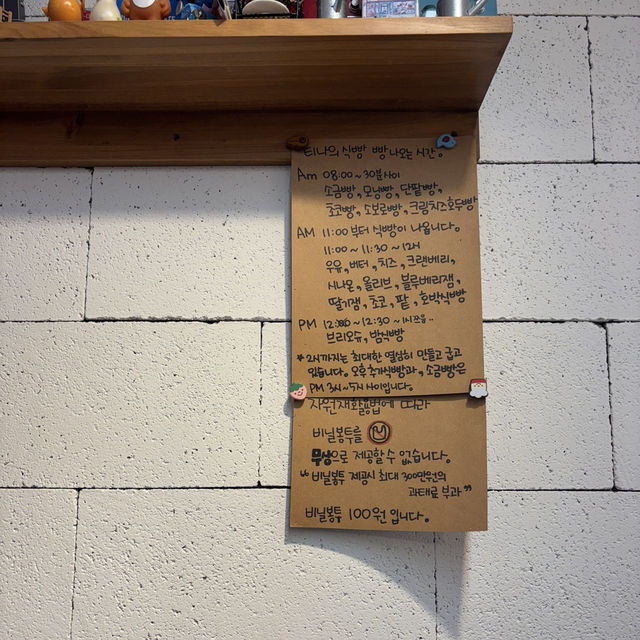 티나의 식빵 빵 나오는 시간.
Am 08:00 ~ 30분사이
소금빵, 모닝빵, 단팥빵,
초코빵, 소보로빵, 크림치즈호두빵
AM 11:00 부터 식빵이 나옵니다.
11:00 ~ 11:30 ~ 12시
우유, 버터, 치즈, 크랜베리,
시나몬, 올리브, 블루베리잼,
딸기잼, 초코, 팥, 호박식빵
PM 12:00 ~ 12:30 ~ 1시쯤음..
브리오슈, 밤식빵
* 2시까지는 최대한 열심히 만들고 굽고
있습니다. 오후추가식빵과, 소금빵은
PM 3시~5시 사이입니다.
자원재활용법에 따라
비닐봉투를
무상으로 제공할 수 없습니다.
“비닐봉투 제공시 최대 300만원의
과태료 부과”
비닐봉투 100원 입니다.